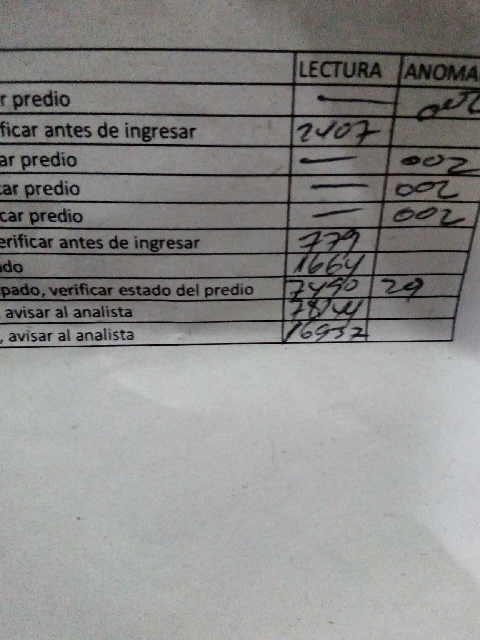 LECTURA ANOMA
r predio — 002
ficar antes de ingresar 2407
ar predio — 002
car predio — 002
car predio — 002
erificar antes de ingresar 779
ado 1664
pado, verificar estado del predio 7490 29
, avisar al analista
, avisar al analista 16937